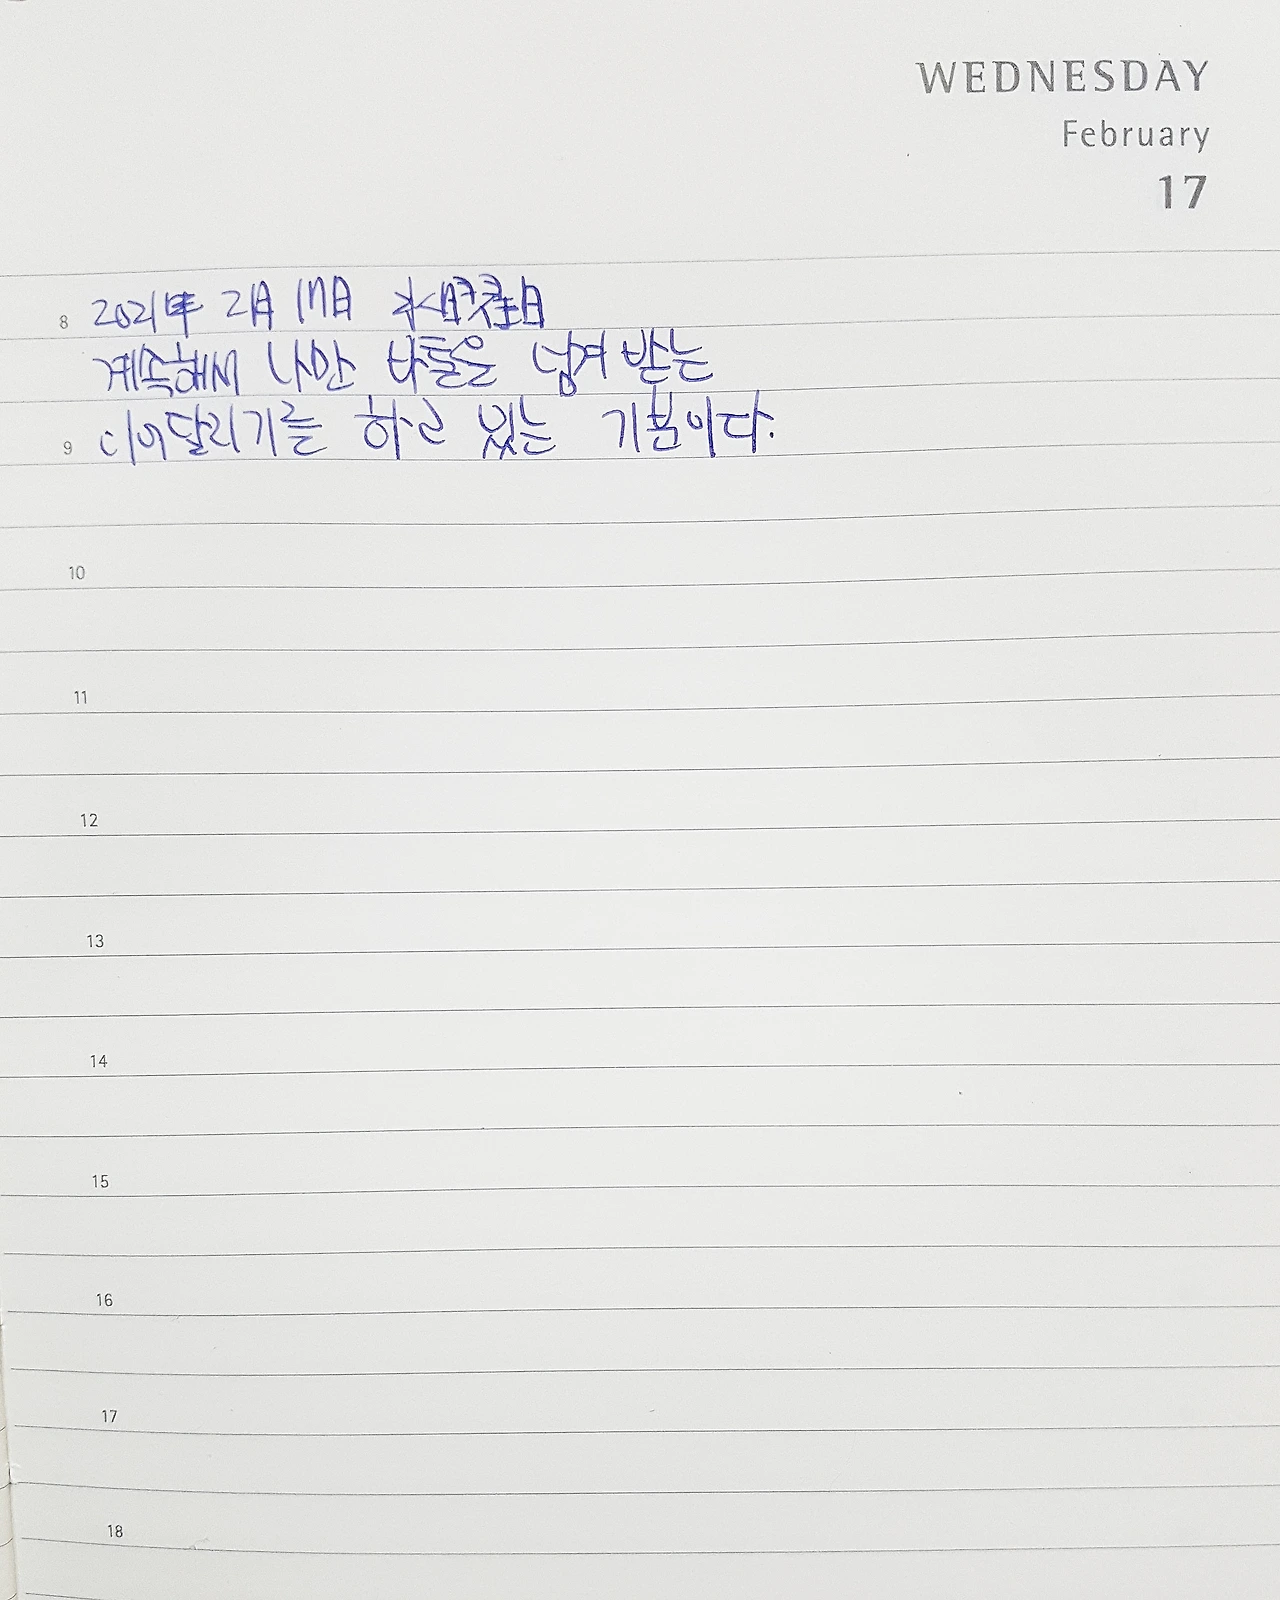 WEDNESDAY
February
17
8 2021年 2月 17日 水曜日
계속해서 나만 바톤을 넘겨 받는
9 이어달리기를 하고 있는 기분이다.
10
11
12
13
14
15
16
17
18